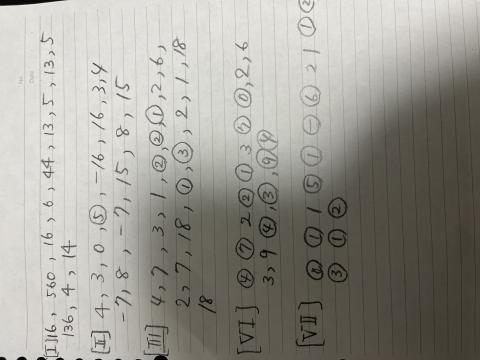 [I] 16, 560, 16, 6, 44, 13, 5, 13, 5
136, 4, 14
[II] 4, 3, 0, ⑤, -16, 16, 3, 4
-7, 8, -7, 15, 8, 15
[III] 4, 7, 3, 1, ②, ②, ①, 2, 6,
2, 7, 18, ①, ③, 2, 1, 18
18
[VI] ④ ⑦ 2 ② ① 3 ⓪, 2, 6
3, 9 ④, ③, ⑨ ④
[VII] ⑧ ① 1 ⑤ ① ⊖ ⑥ 2 1 ① ②
③ ① ②